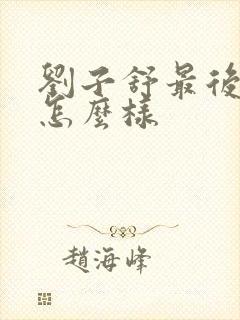 劉子舒最後
怎麼樣
趙海峰